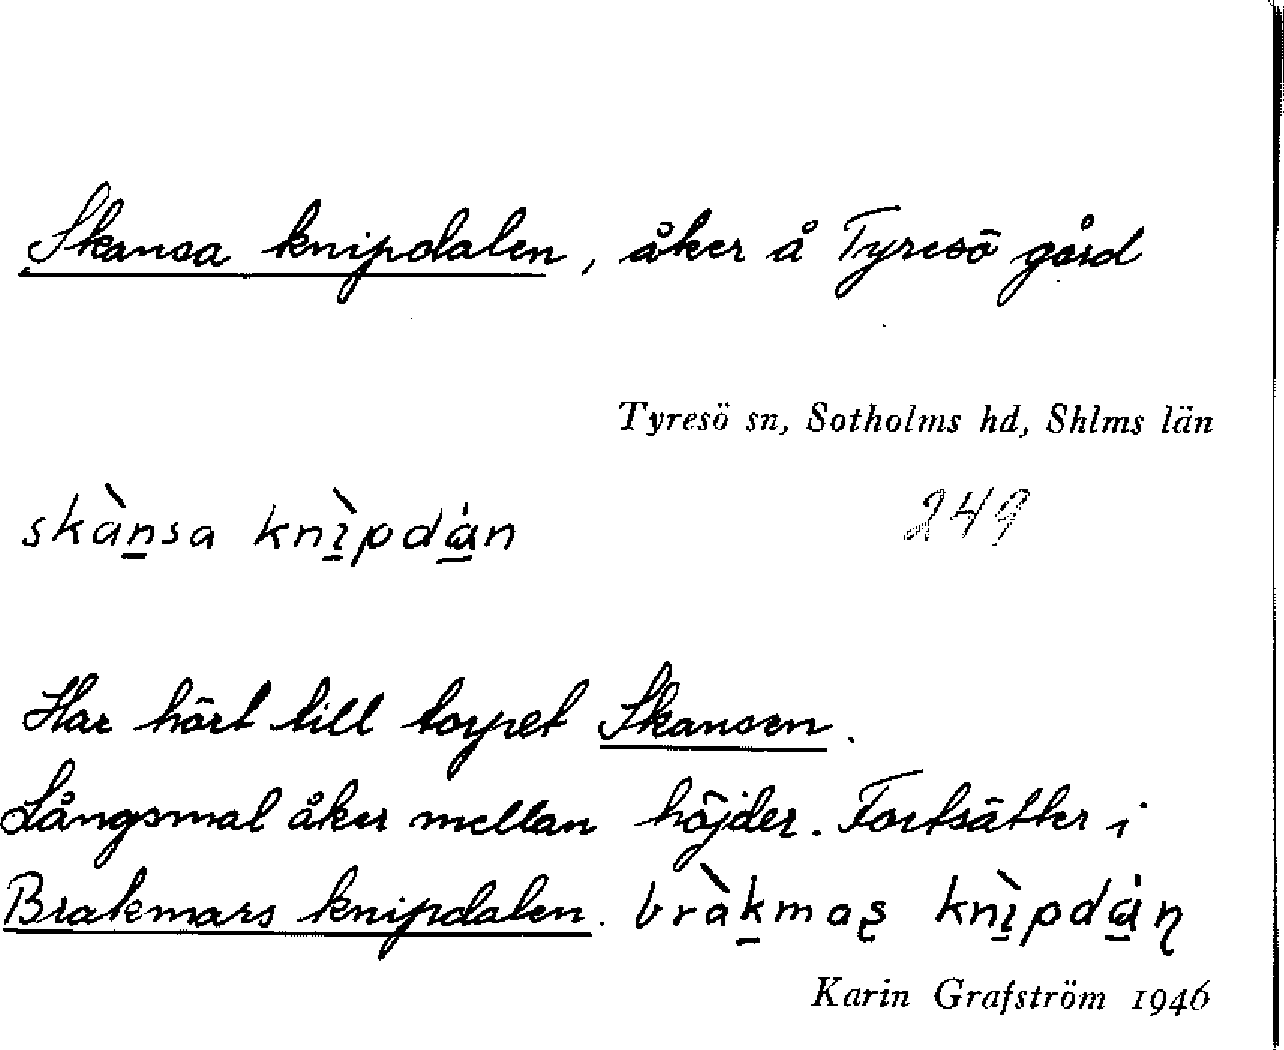 Skansa knipdalen, åker å Tyresö gård
Tyresö sn, Sotholms hd, Shlms län
skàn̲sa knìpdȧn
249
Har hört till torpet Skansen.
Långsmal åker mellan höjder. Fortsätter i
Brakmars knipdalen. bràk̲maʂ knìpdȧɳ
Karin Grafström 1946